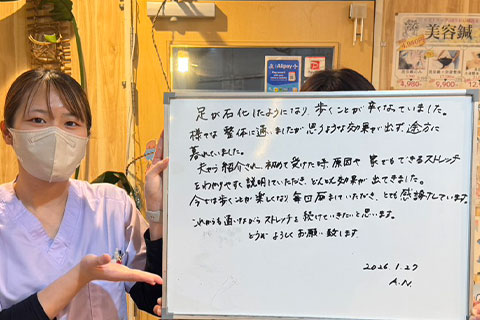 足が石化したようになり、歩くことが辛くなっていました。
様々な 整体に通いましたが 思うような効果が出ず、途方に
暮れていました。
夫から 紹介され、初めて受けた時、原因や 家でもできるストレッチ
をわかりやすく説明していただき、どんどん効果が出てきました。
今では歩くことが楽しくなり 毎回 をしていただき、とても感謝しています。
これからも通いながら ストレッチを 続けていきたいと思います。
どうぞ よろしくお願い致します。
2026.1.27
A.N.
Alipay
美容鍼
4,980